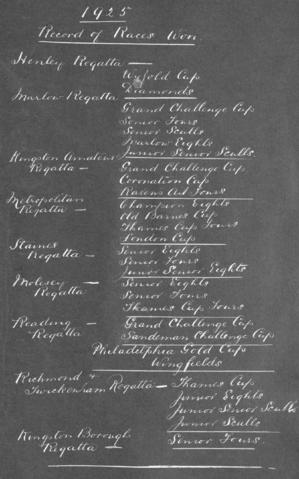 1925
Record of Races Won.
Henley Regatta —
Wyfold Cup
Diamonds
Marlow Regatta —
Grand Challenge Cup
Senior Fours
Senior Sculls
Marlow Eights
Junior Senior Sculls
Kingston Amateur
Regatta —
Grand Challenge Cup
Coronation Cup
Ravens Ait Fours
Metropolitan
Regatta —
Champion Eights
Old Barnes Cup
Thames Cup Fours
London Cup
Staines
Regatta —
Senior Eights
Senior Fours
Junr Senior Eights
Molesey —
Regatta
Senior Eights
Senior Fours
Thames Cup Fours
Reading —
Regatta
Grand Challenge Cup
Sandeman Challenge Cup
Philadelphia Gold Cup
Wingfields
Richmond &
Twickenham Regatta —
Thames Cup
Junior Eights
Junior Senior Sculls
Junior Sculls
Kingston Borough
Regatta —
Senior Fours.